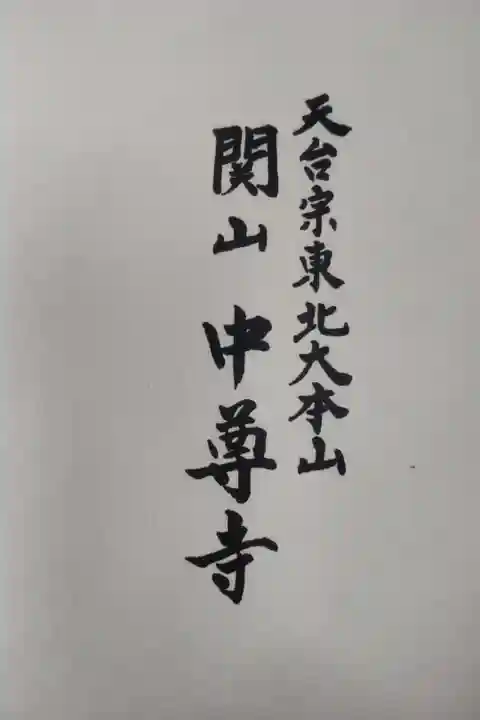 天台宗東北大本山
関山 中尊寺